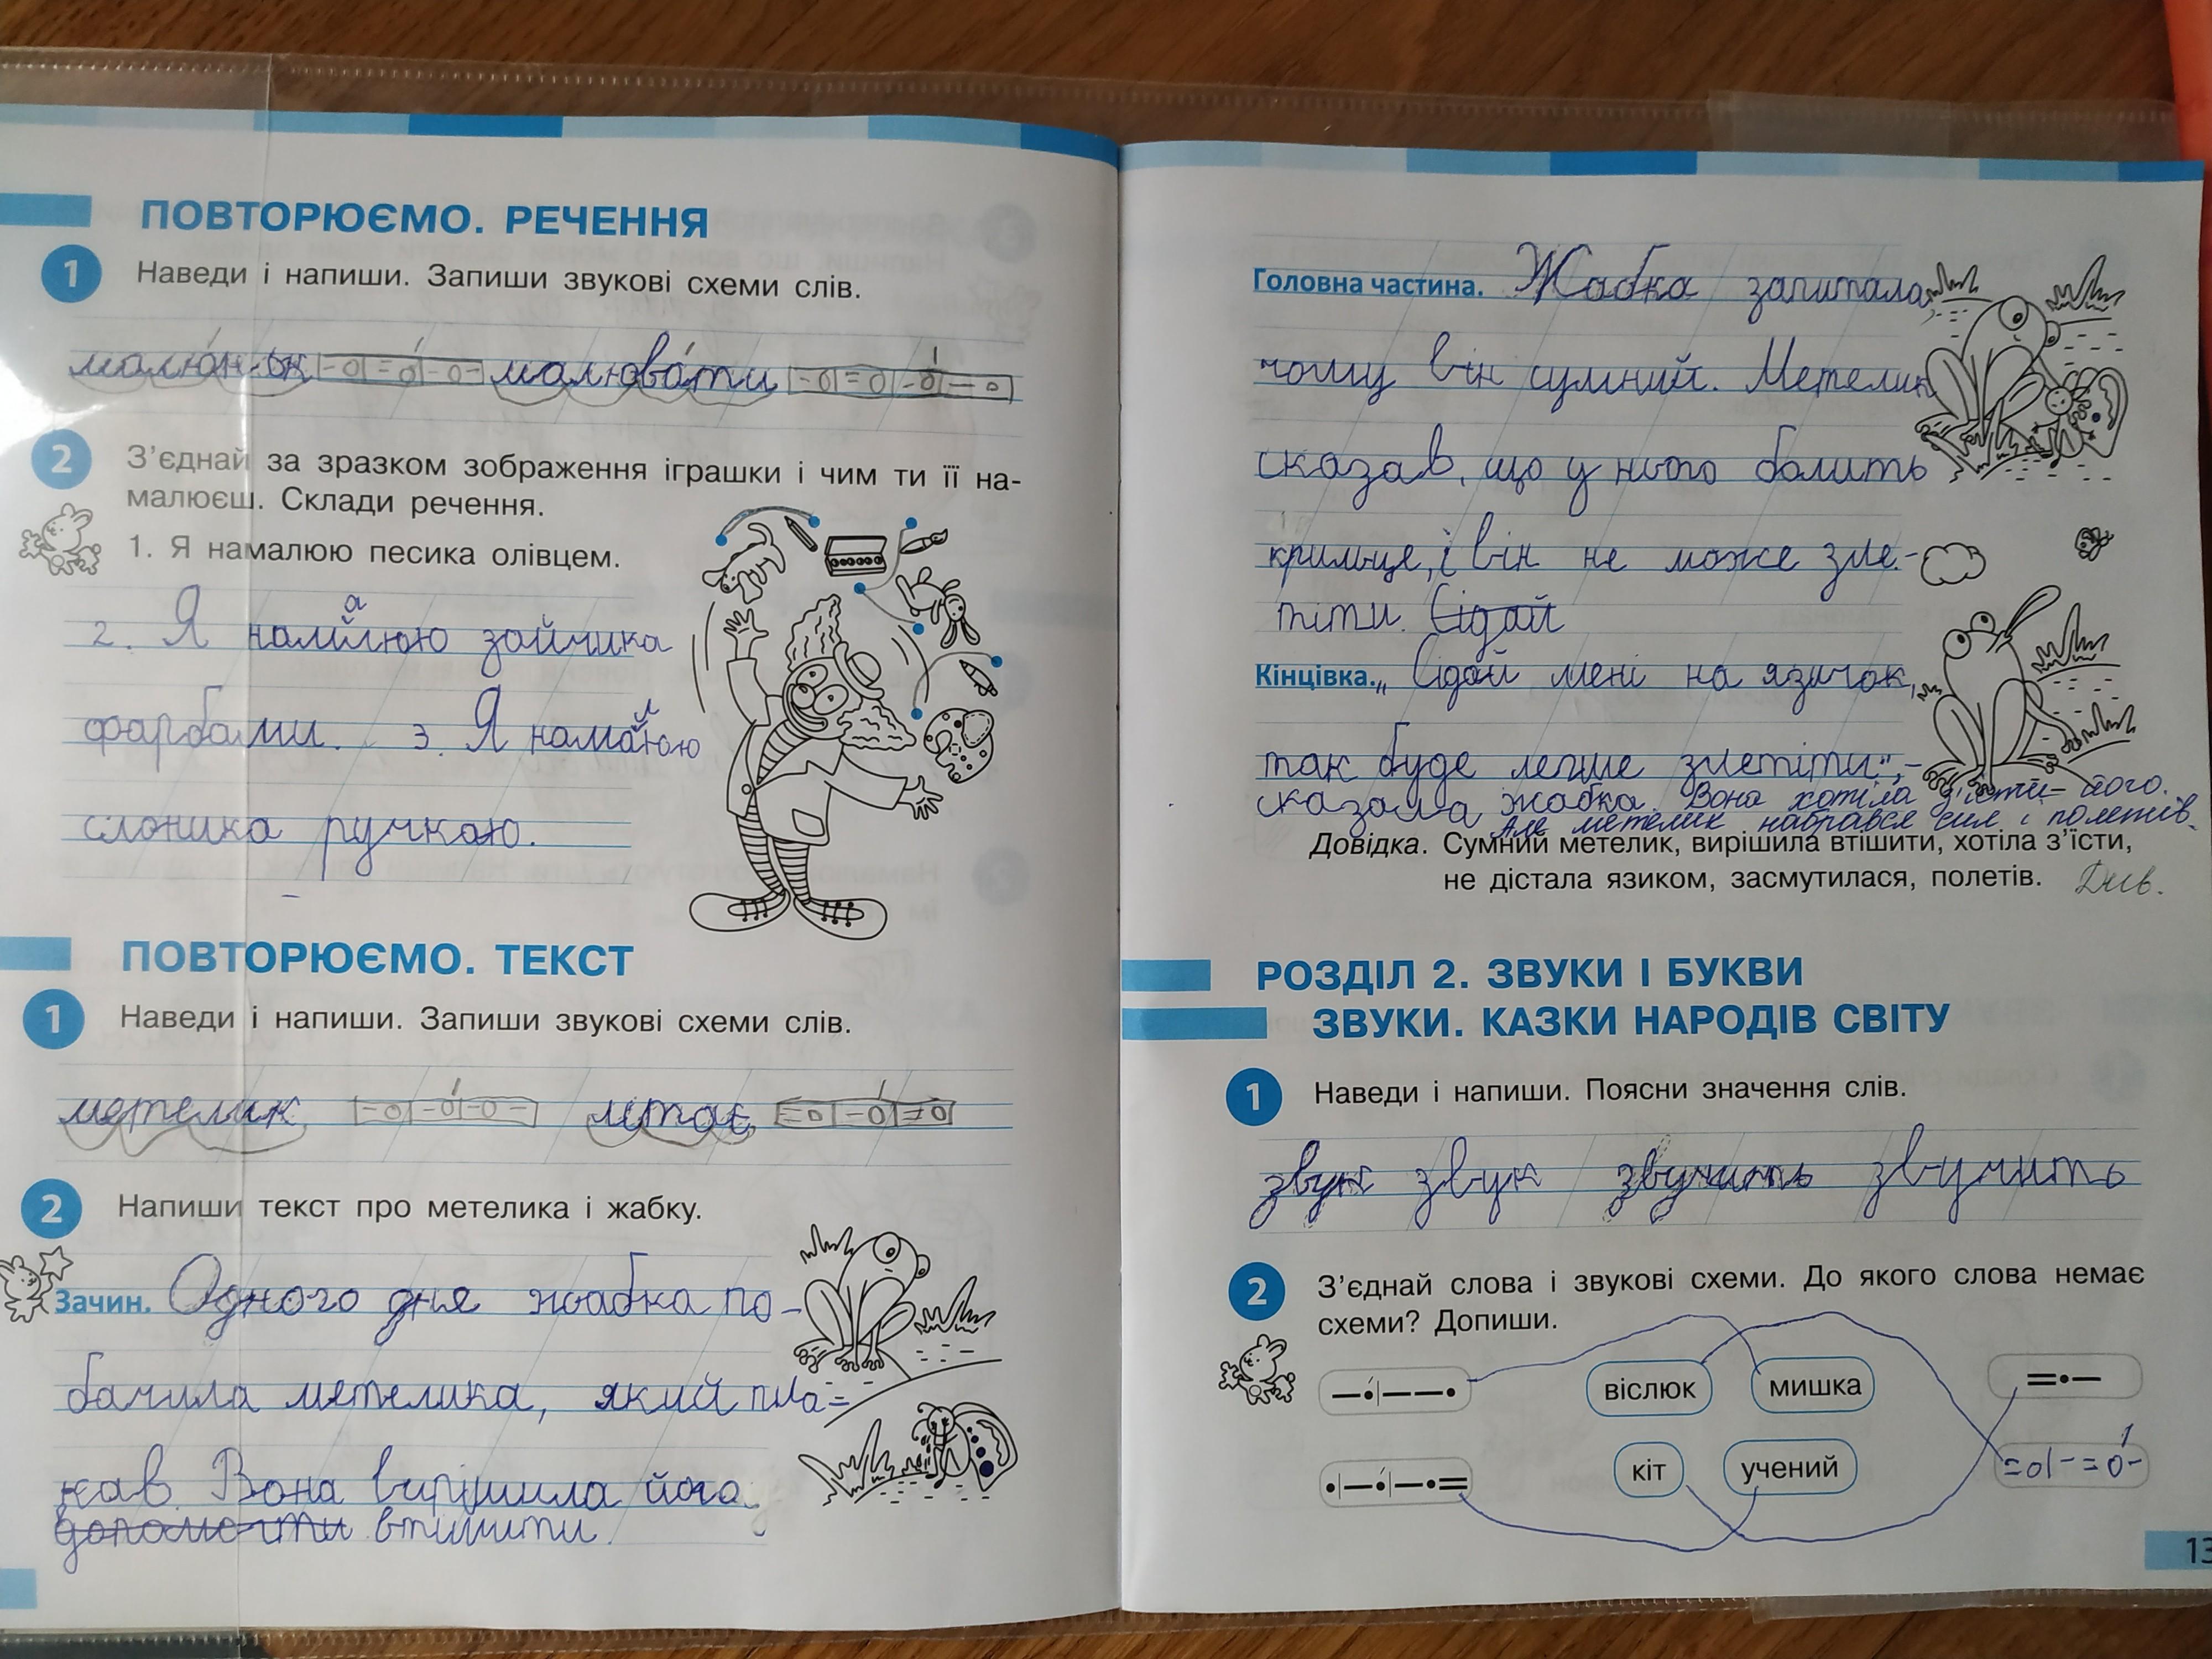 ПОВТОРЮЄМО. РЕЧЕННЯ
1 Наведи і напиши. Запиши звукові схеми слів.
малюнок малювати
2 З’єднай за зразком зображення іграшки і чим ти її на-
малюєш. Склади речення.
1. Я намалюю песика олівцем.
2. Я намалюю зайчика
фарбами. 3. Я намалюю
слоника ручкою.
ПОВТОРЮЄМО. ТЕКСТ
1 Наведи і напиши. Запиши звукові схеми слів.
метелик літає
2 Напиши текст про метелика і жабку.
Зачин. Одного дня жабка по-
бачила метелика, який пла=
кав. Вона вирішила його
допомогти втішити.
Головна частина. Жабка запитала
чому він сумний. Метелик
сказав, що у нього болить
крильце, і він не може зле-
тіти. Сідай
Кінцівка. „Сідай мені на язичок,
так буде легше злетіти",-
сказала жабка. Вона хотіла з'їсти його.
Але метелик набрався сил і полетів.
Довідка. Сумний метелик, вирішила втішити, хотіла з’їсти,
не дістала язиком, засмутилася, полетів.
РОЗДІЛ 2. ЗВУКИ І БУКВИ
ЗВУКИ. КАЗКИ НАРОДІВ СВІТУ
1 Наведи і напиши. Поясни значення слів.
звук звук звучить звучить
2 З’єднай слова і звукові схеми. До якого слова немає
схеми? Допиши.
віслюк мишка
кіт учений
13